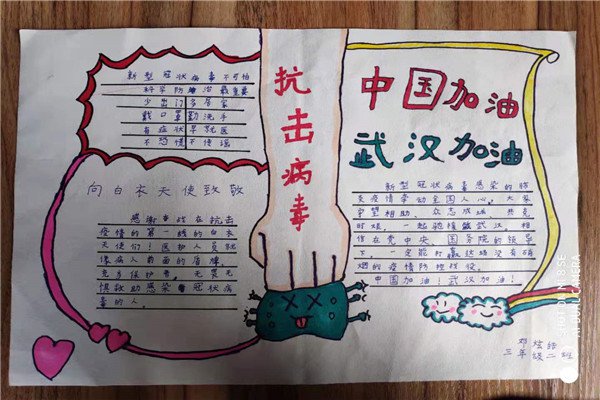 新型冠状病毒不可怕
科学防治最重要
少出门多居家
戴口罩勤洗手
有症状早就医
不恐慌不传谣
向白衣天使致敬
感谢战在抗击
疫情的第一线的白衣
天使们！医护人员就
像病人前面的盾牌，
竞力保护着，无畏无
惧救助感染冠状病
毒的人。
抗击病毒
中国加油
武汉加油
新型冠状病毒感染的肺
炎疫情牵动全国人心。大家
守望相助、众志成城、共克
时艰，一起驰援武汉。相
信在党中央、国务院的领导
下，一定能打赢这场没有硝
烟的疫情防控战役。
中国加油！武汉加油！
三年级二班
SHOT ON MI 8 SE
AI DUAL CAMERA